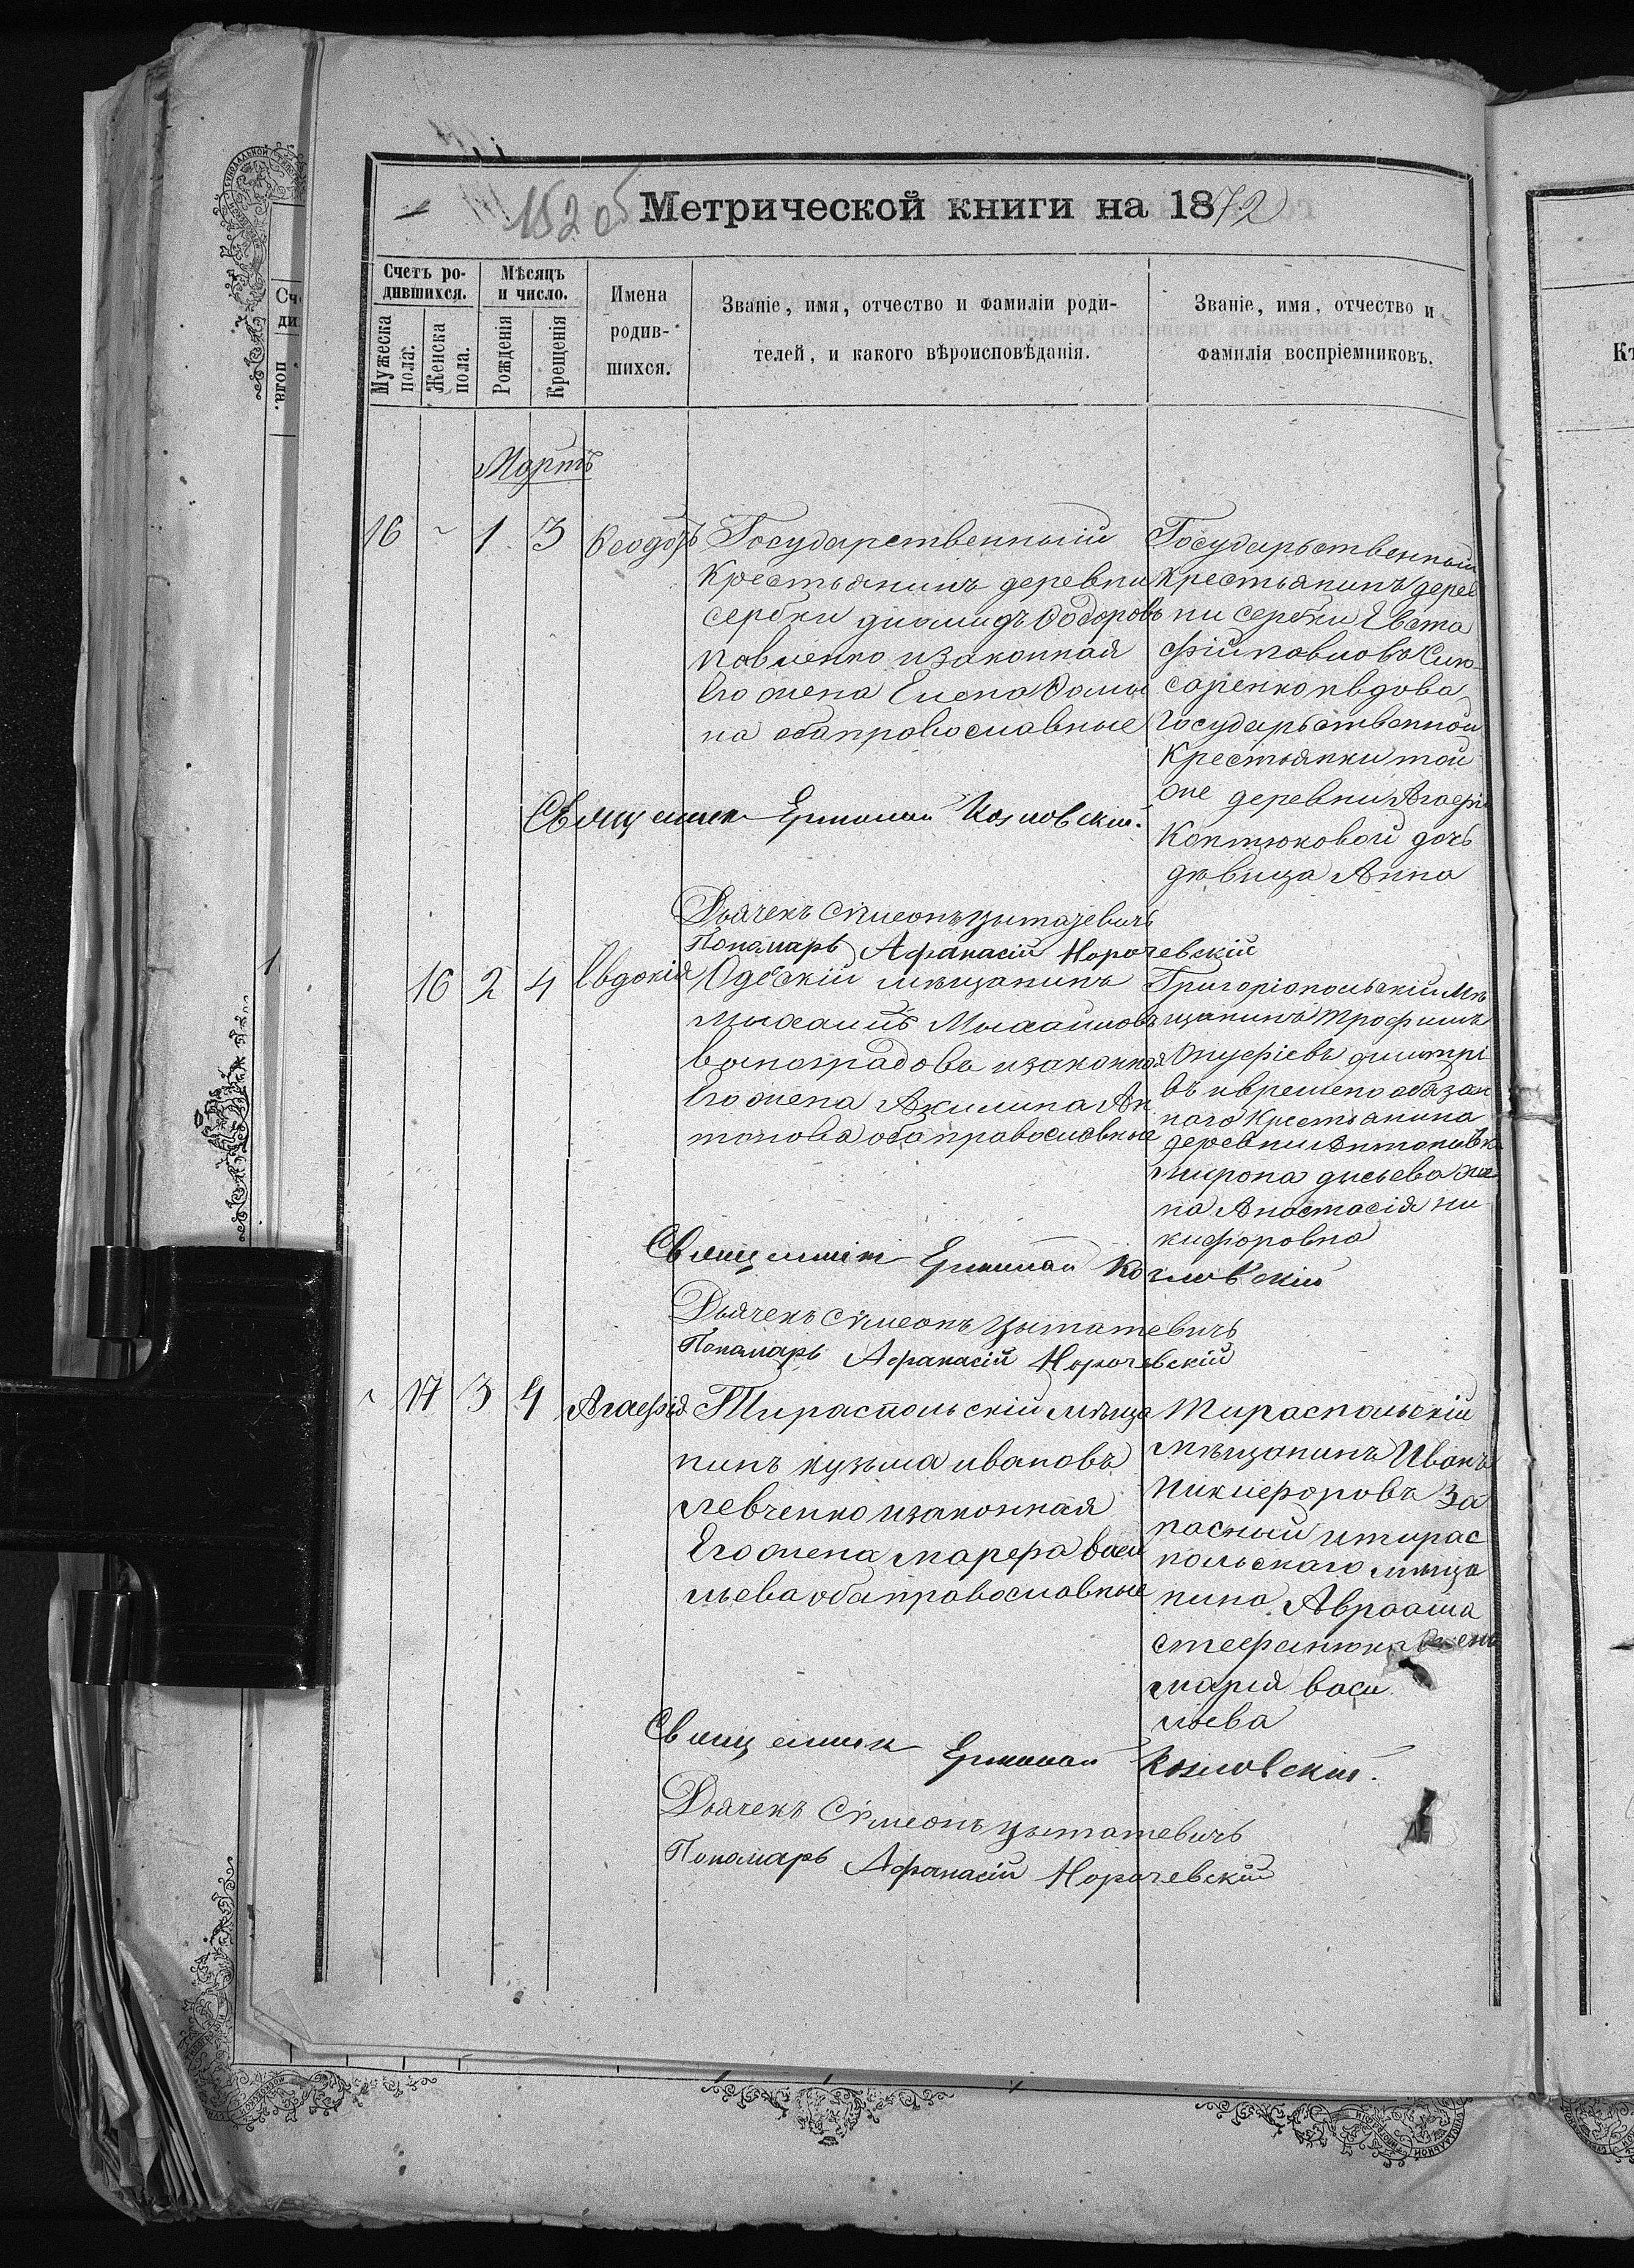 152 об
Метрической книги на 1872
Счетъ ро-
дившихся.
Мужеска
пола.
Женска
пола.
Мѣсяцъ
и число.
Рожденія
Крещенія
Имена
родив-
шихся.
Званіе, имя, отчество и фамиліи роди-
телей, и какого вѣроисповѣданія.
Званіе, имя, отчество и
фамилія воспріемниковъ.
Мартъ
16 1 3 Ѳеодоръ
Государственный
Крестьянинъ деревни
сербки диамидъ Ѳодоровъ
Павленко изаконная
Его жена Елена
на оба православные
Государьственный
Крестьянинъ дерев
ни сербки Евста
фій павловъ
саренко и вдова
Государьственной
Крестьянки той
же деревни Агафіи
Коптюковой дочь
дѣвица Анна
Священник Ермолай Козловский.
Дьячекъ Сѵмеонъ
Пономарь Афанасій
16 2 4 Евдокія
Одескій мѣщанинъ
Михаилъ Михаиловъ
виноградовъ изаконная
Его жена Акилина Ан
тонова оба православные
Григоріопольскій мѣ
щанинъ Трофимъ
Онуфріевъ димитрі
въ и временно обязан
наго Крестьянина
деревни Антоновки
Мирона дисьева же
на Анастасія ни
кифоровна
Священникъ Ермолай Козловскій
Дьячекъ Сѵмеонъ
Пономарь Афанасій
17 3 4 Агафія
Тираспольскій мѣща
нинъ кузьма ивановъ
левченко изаконная
Его жена марфа васи
льева оба православные
Тираспольскій
мѣщанинъ Иванъ
Никифоровъ За
пасный и тирас
польскаго мѣща
нина Авраама
стефанюка жена
марія васи
льева
Священник Ермолай Козловскій.
Дьячекъ Сѵмеонъ
Пономарь Афанасій